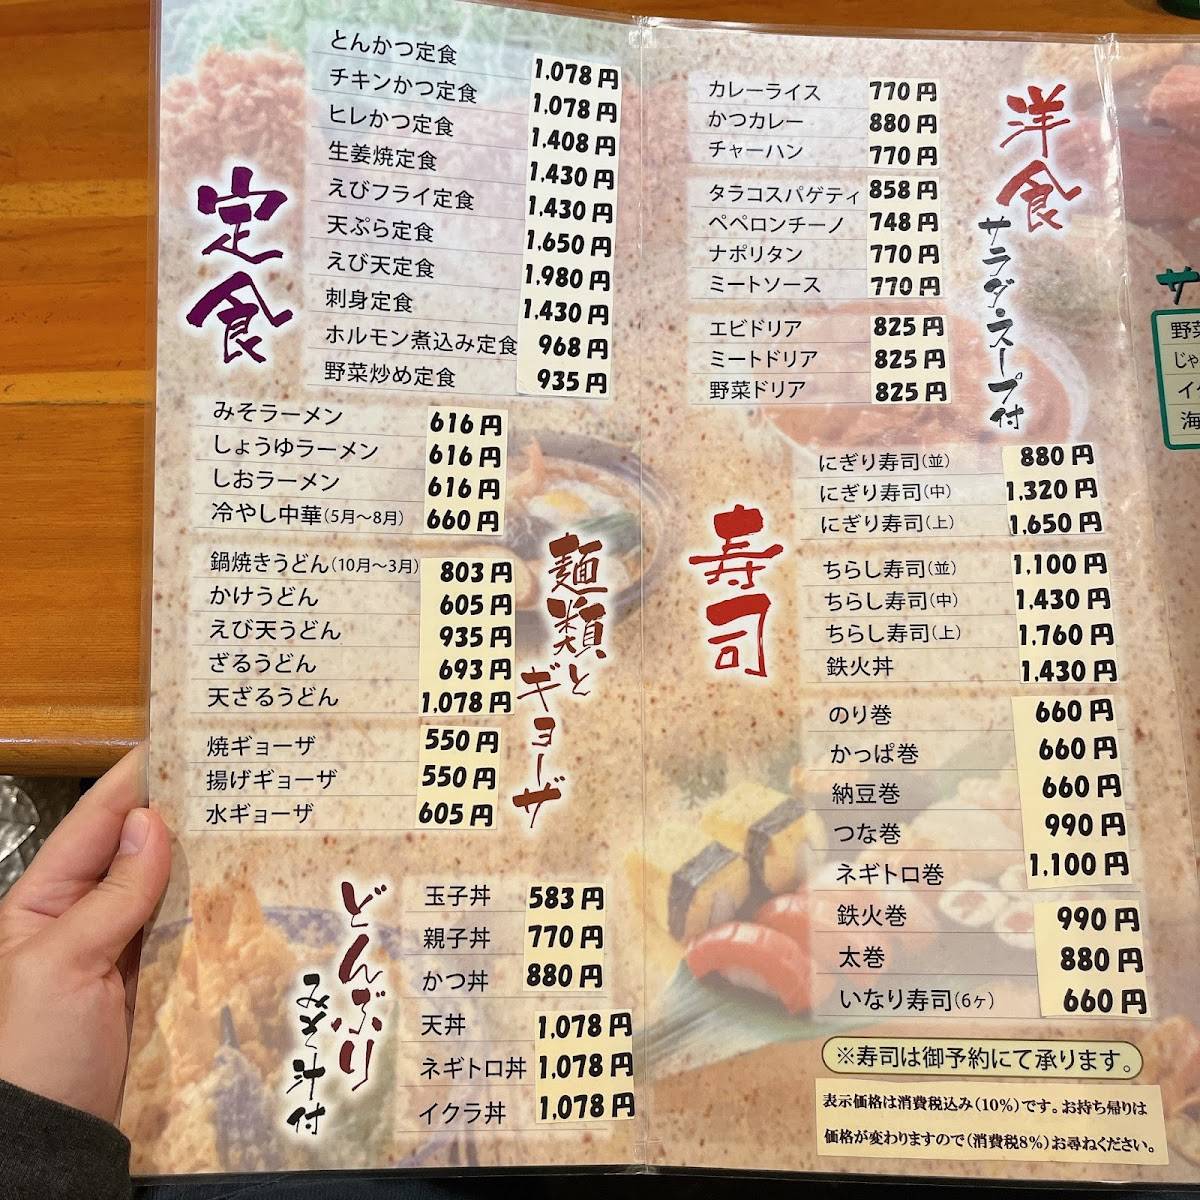 定食
とんかつ定食 1,078円
チキンかつ定食 1,078円
ヒレかつ定食 1,408円
生姜焼定食 1,430円
えびフライ定食 1,430円
天ぷら定食 1,650円
えび天定食 1,980円
刺身定食 1,430円
ホルモン煮込み定食 968円
野菜炒め定食 935円
麺類とギョーザ
みそラーメン 616円
しょうゆラーメン 616円
しおラーメン 616円
冷やし中華(5月〜8月) 660円
鍋焼きうどん(10月〜3月) 803円
かけうどん 605円
えび天うどん 935円
ざるうどん 693円
天ざるうどん 1,078円
焼ギョーザ 550円
揚げギョーザ 550円
水ギョーザ 605円
どんぶり
みそ汁付
玉子丼 583円
親子丼 770円
かつ丼 880円
天丼 1,078円
ネギトロ丼 1,078円
イクラ丼 1,078円
洋食
サラダ・スープ付
カレーライス 770円
かつカレー 880円
チャーハン 770円
タラコスパゲティ 858円
ペペロンチーノ 748円
ナポリタン 770円
ミートソース 770円
エビドリア 825円
ミートドリア 825円
野菜ドリア 825円
寿司
にぎり寿司(並) 880円
にぎり寿司(中) 1,320円
にぎり寿司(上) 1,650円
ちらし寿司(並) 1,100円
ちらし寿司(中) 1,430円
ちらし寿司(上) 1,760円
鉄火丼 1,430円
のり巻 660円
かっぱ巻 660円
納豆巻 660円
つな巻 990円
ネギトロ巻 1,100円
鉄火巻 990円
太巻 880円
いなり寿司(6ヶ) 660円
※寿司は御予約にて承ります。
表示価格は消費税込み(10%)です。お持ち帰りは
価格が変わりますので(消費税8%)お尋ねください。
サ
野菜
じゃ
イ
海